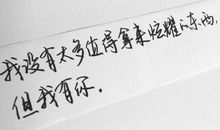 我没有太多值得拿来炫耀的东西，
但我有你。